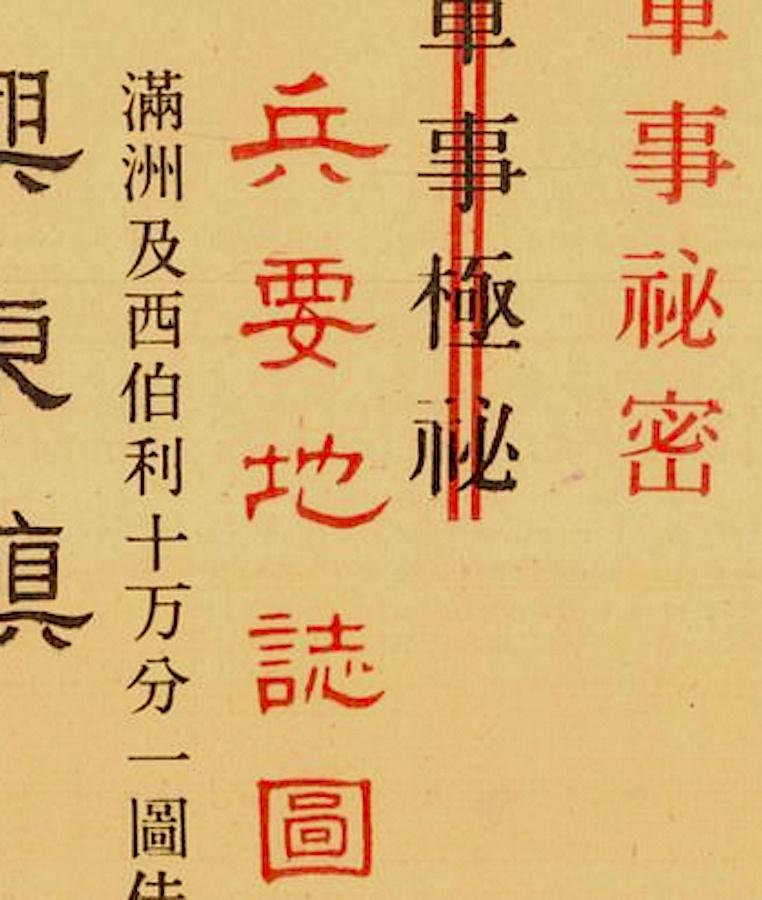 軍事祕密
軍事極祕
兵要地誌圖
滿洲及西伯利十万分一圖